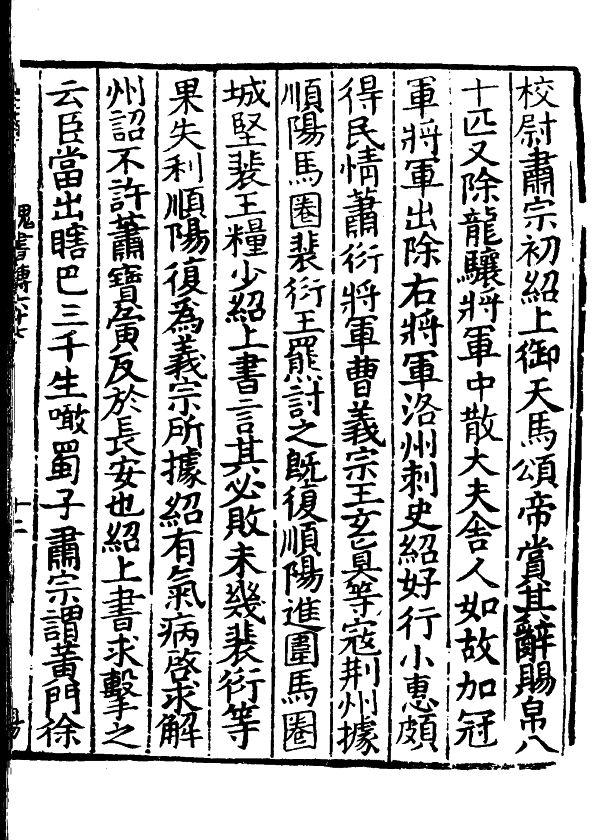 校尉肅宗初紹上御天馬頌帝賞其辭賜帛八
十匹又除龍驤將軍中散大夫舍人如故加冠
軍將軍出除右將軍洛州刺史紹好行小惠頗
得民情蕭衍將軍曹義宗王玄真等寇荆州據
順陽馬圈裴衍王羆討之既復順陽進圍馬圈
城堅裴王糧少紹上書言其必敗未幾裴衍等
果失利順陽復為義宗所據紹有氣病啓求解
州詔不許蕭寶夤反於長安也紹上書求擊之
云臣當出瞎巴三千生噉蜀子肅宗謂黄門徐
魏書傳六十七
十二